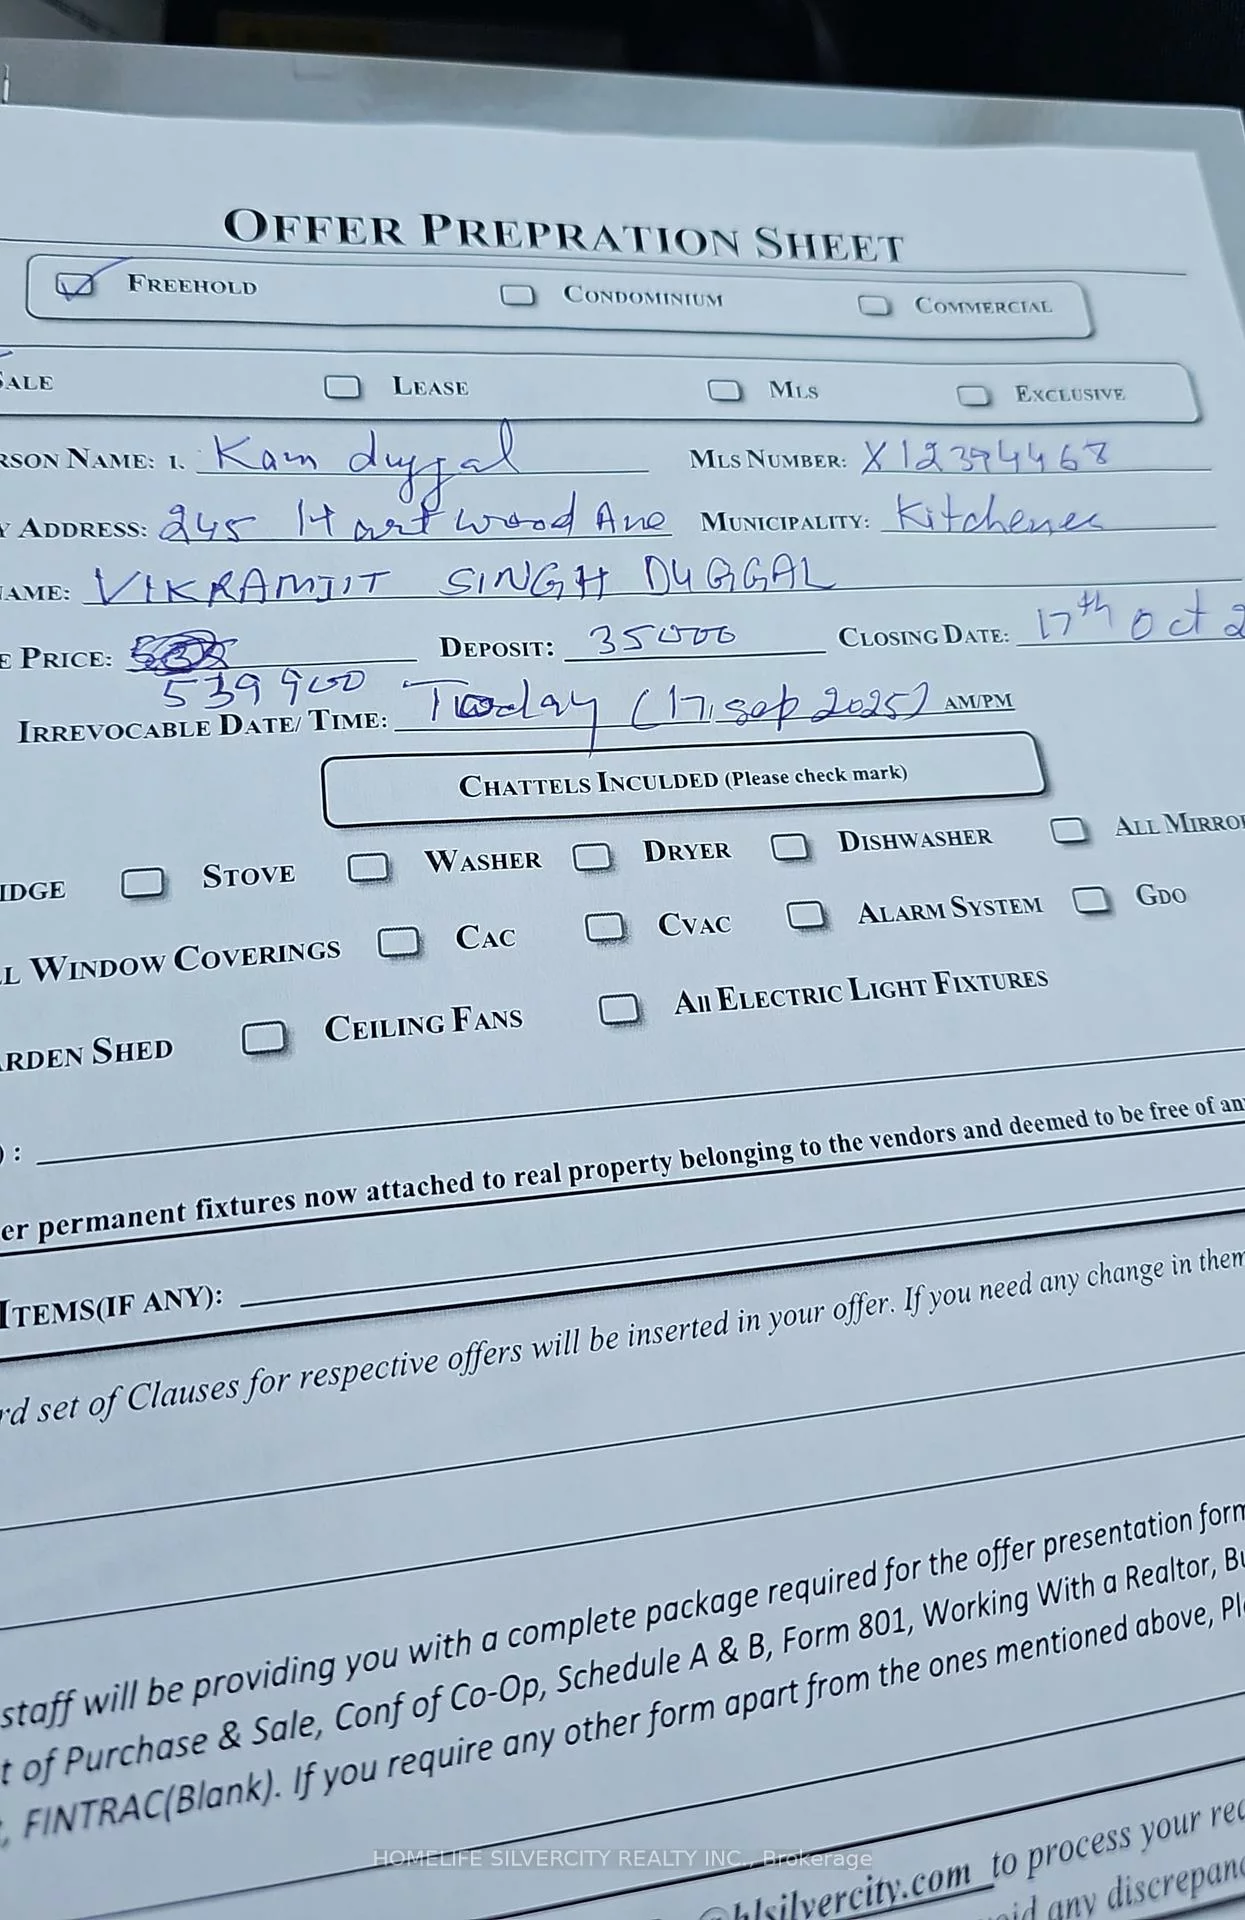 OFFER PREPRATION SHEET
FREEHOLD CONDOMINIUM COMMERCIAL
SALE LEASE MLS EXCLUSIVE
RSON NAME: 1. Kam duggal MLS NUMBER: X12394468
Y ADDRESS: 245 Hartwood Ave MUNICIPALITY: Kitchener
AME: VIKRAMJIT SINGH DUGGAL
E PRICE: DEPOSIT: 35000 CLOSING DATE: 17th Oct 2
539900
IRREVOCABLE DATE/ TIME: Today (17, sep 2025) AM/PM
CHATTELS INCULDED (Please check mark)
IDGE STOVE WASHER DRYER DISHWASHER ALL MIRRO
L WINDOW COVERINGS CAC CVAC ALARM SYSTEM GDO
ARDEN SHED CEILING FANS All ELECTRIC LIGHT FIXTURES
) :
er permanent fixtures now attached to real property belonging to the vendors and deemed to be free of an
ITEMS(IF ANY):
rd set of Clauses for respective offers will be inserted in your offer. If you need any change in them
staff will be providing you with a complete package required for the offer presentation form
t of Purchase & Sale, Conf of Co-Op, Schedule A & B, Form 801, Working With a Realtor, Bu
, FINTRAC(Blank). If you require any other form apart from the ones mentioned above, Pl
HOMELIFE SILVERCITY REALTY INC., Brokerage
@hlsilvercity.com to process your req
any discrepanc